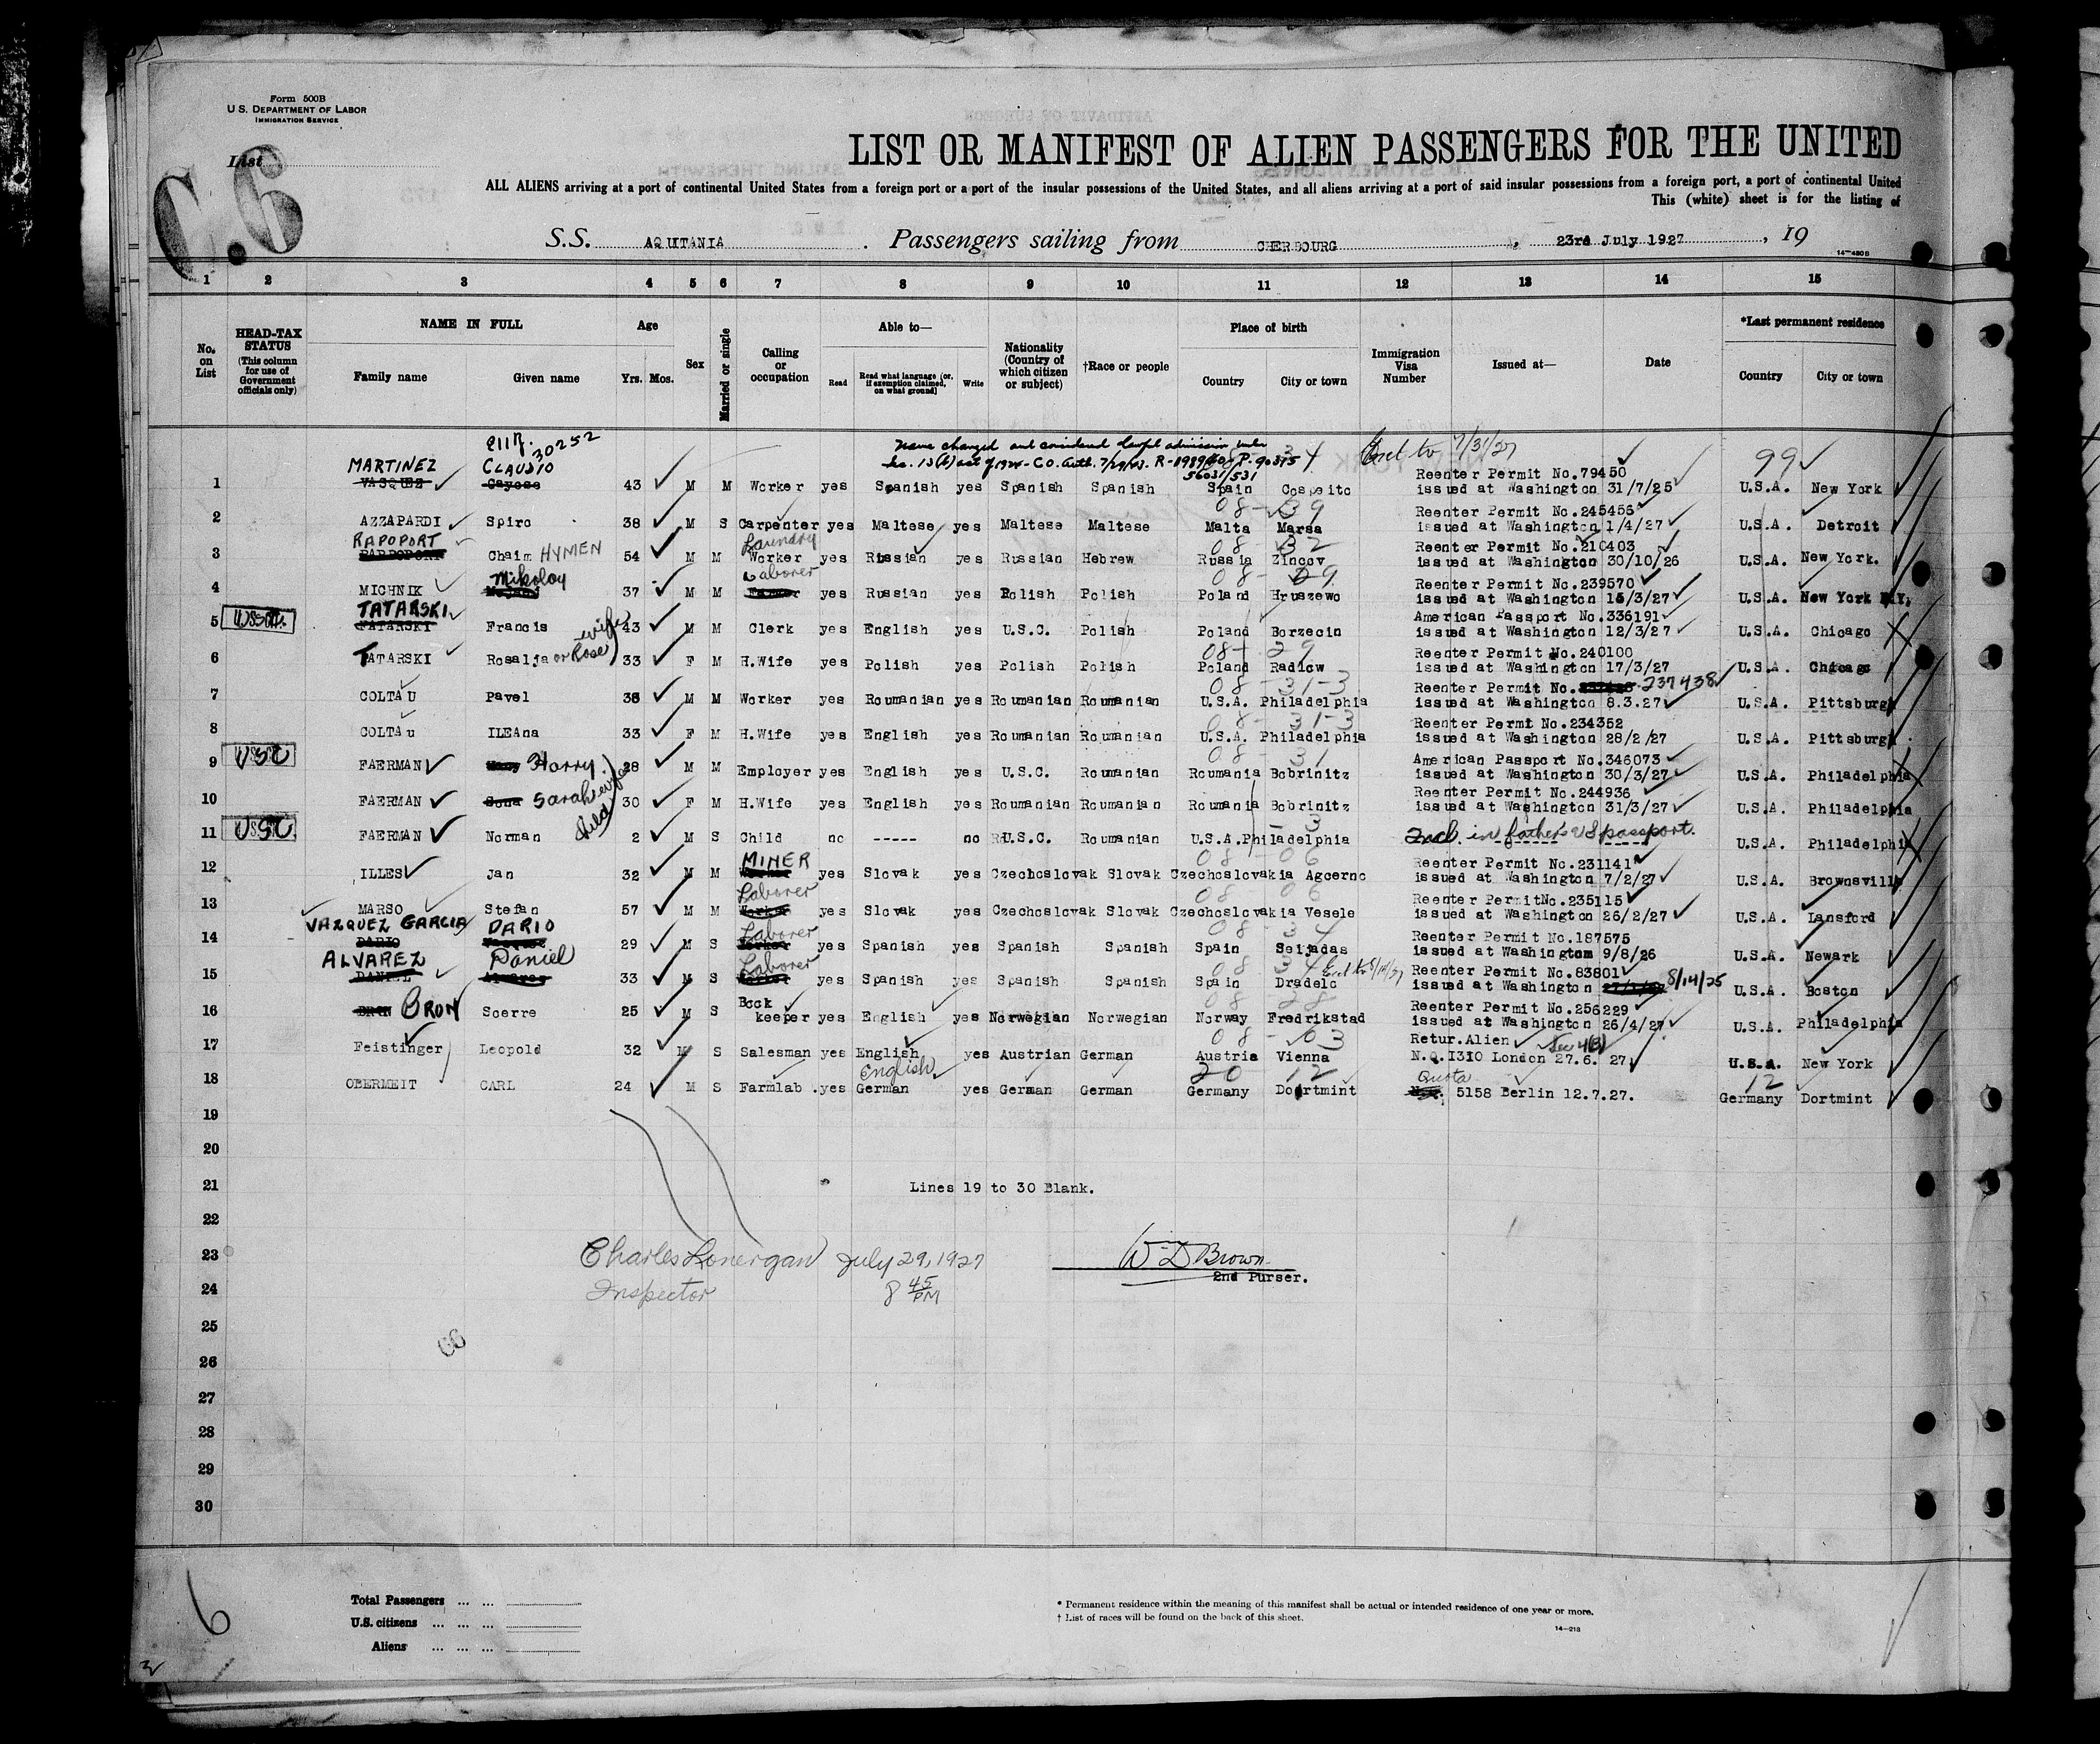 Form 500B
U.S. DEPARTMENT OF LABOR
IMMIGRATION SERVICE
List
C.6
LIST OR MANIFEST OF ALIEN PASSENGERS FOR THE UNITED
ALL ALIENS arriving at a port of continental United States from a foreign port or a port of the insular possessions of the United States, and all aliens arriving at a port of said insular possessions from a foreign port, a port of continental United
This (white) sheet is for the listing of
S.S. AQUITANIA. Passengers sailing from CHERBOURG, 23rd July 1927, 19
14—480B
1 2 3 4 5 6 7 8 9 10 11 12 13 14 15
No. on List
HEAD-TAX STATUS (This column for use of Government officials only)
NAME IN FULL
Family name Given name
Age
Yrs. Mos.
Sex
Married or single
Calling or occupation
Able to—
Read Read what language [or, if exemption claimed, on what ground] Write
Nationality (Country of which citizen or subject)
†Race or people
Place of birth
Country City or town
Immigration Visa Number
Issued at—
Date
*Last permanent residence
Country City or town
30252
Name changed and considered lawful admission under 34 7/31/27
MARTINEZ CLAUDIO Sec. 13(b) act of 1924 - C.O. Auth. 99
56031/531 Reenter Permit No.79450
1 VASQUEZ Cayose 43 M M Worker yes Spanish yes Spanish Spanish Spain Cospeito issued at Washington 31/7/25 U.S.A. New York
08-39 Reenter Permit No.245456
2 AZZAPARDI Spiro 38 M S Carpenter yes Maltese yes Maltese Maltese Malta Marsa issued at Washington 1/4/27 U.S.A. Detroit
RAPOPORT Laundry 08-32 Reenter Permit No.210403
3 Chaim HYMEN 54 M M Worker yes Russian yes Russian Hebrew Russia Zincov issued at Washington 30/10/26 U.S.A. New York.
Mikoloy Laborer 08-29 Reenter Permit No.239570
4 MICHNIK 37 M M yes Russian yes Polish Polish Poland Hruszewo issued at Washington 15/3/27 U.S.A. New York N.Y.
TATARSKI American Passport No.336191
5 USC TATARSKI Francis 43 M M Clerk yes English yes U.S.C. Polish Poland Borzecin issued at Washington 12/3/27 U.S.A. Chicago
08-29 Reenter Permit No.240100
6 TATARSKI Rosalja or Rose wife 33 F M H.Wife yes Polish yes Polish Polish Poland Radlow issued at Washington 17/3/27 U.S.A. Chicago
08-31-3 Reenter Permit No. 237438
7 COLTAU Pavel 38 M M Worker yes Roumanian yes Roumanian Roumanian U.S.A. Philadelphia issued at Washington 8.3.27 U.S.A. Pittsburgh
08-31-3 Reenter Permt No.234352
8 COLTAu ILEAna 33 F M H.Wife yes English yes Roumanian Roumanian U.S.A. Philadelphia issued at Washington 28/2/27 U.S.A. Pittsburgh
08-31 American Passport No.346073
9 USC FAERMAN Harry 28 M M Employer yes English yes U.S.C. Roumanian Roumania Bobrinitz issued at Washington 30/3/27 U.S.A. Philadelphia
Reenter Permit No.244936
10 FAERMAN Sona Sarah wife 30 F M H.Wife yes English yes Roumanian Roumanian Roumania Bobrinitz issued at Washington 31/3/27 U.S.A. Philadelphia
11 USC FAERMAN Norman child 2 M S Child no ----- no U.S.C. Roumanian U.S.A. Philadelphia Incl. in father's US passport. U.S.A. Philadelphia
MINER 08-06 Reenter Permit No.231141
12 ILLES Jan 32 M M Worker yes Slovak yes Czechoslovak Slovak Czechoslovakia Agcerno issued at Washington 7/2/27 U.S.A. Brownsville
Laborer 08-06 Reenter PermitNo.235115
13 MARSO Stefan 57 M M Worker yes Slovak yes Czechoslovak Slovak Czechoslovakia Vesele issued at Washington 26/2/27 U.S.A. Lansford
VAZQUEZ GARCIA DARIO Laborer 08-34 Reenter Permit No.187575
14 DARIO Vasquez 29 M S Worker yes Spanish yes Spanish Spanish Spain Seijadas issued at Washington 9/8/26 U.S.A. Newark
ALVAREZ Daniel Laborer 08 34 Reenter Permit No.83801
15 DANIEL Alvarez 33 M S Worker yes Spanish yes Spanish Spanish Spain Dradelo issued at Washington 8/14/25 U.S.A. Boston
Book 08-28 Reenter Permit No.256229
16 BRUN BRON Scerre 25 M S keeper yes English yes Norwegian Norwegian Norway Fredrikstad issued at Washington 26/4/27 U.S.A. Philadelphia
08-03 Retur.Alien Sec 4(B)
17 Feistinger Leopold 32 M S Salesman yes English yes Austrian German Austria Vienna N.Q.1310 London 27.6.27 U.S.A. New York
English 20 12 Quota 12
18 OBERMEIT CARL 24 M S Farmlab. yes German yes German German Germany Dortmint 5158 Berlin 12.7.27. Germany Dortmint
19
20
21 Lines 19 to 30 Blank.
22
23 Charles Lonergan July 29, 1927 W D Brown
2nd Purser.
24 Inspector 8 45 PM
25
26
27
28
29
30
6
Total Passengers ... ...
U.S. citizens ... ... ...
Aliens ... ... ...
* Permanent residence within the meaning of this manifest shall be actual or intended residence of one year or more.
† List of races will be found on the back of this sheet.
14—213